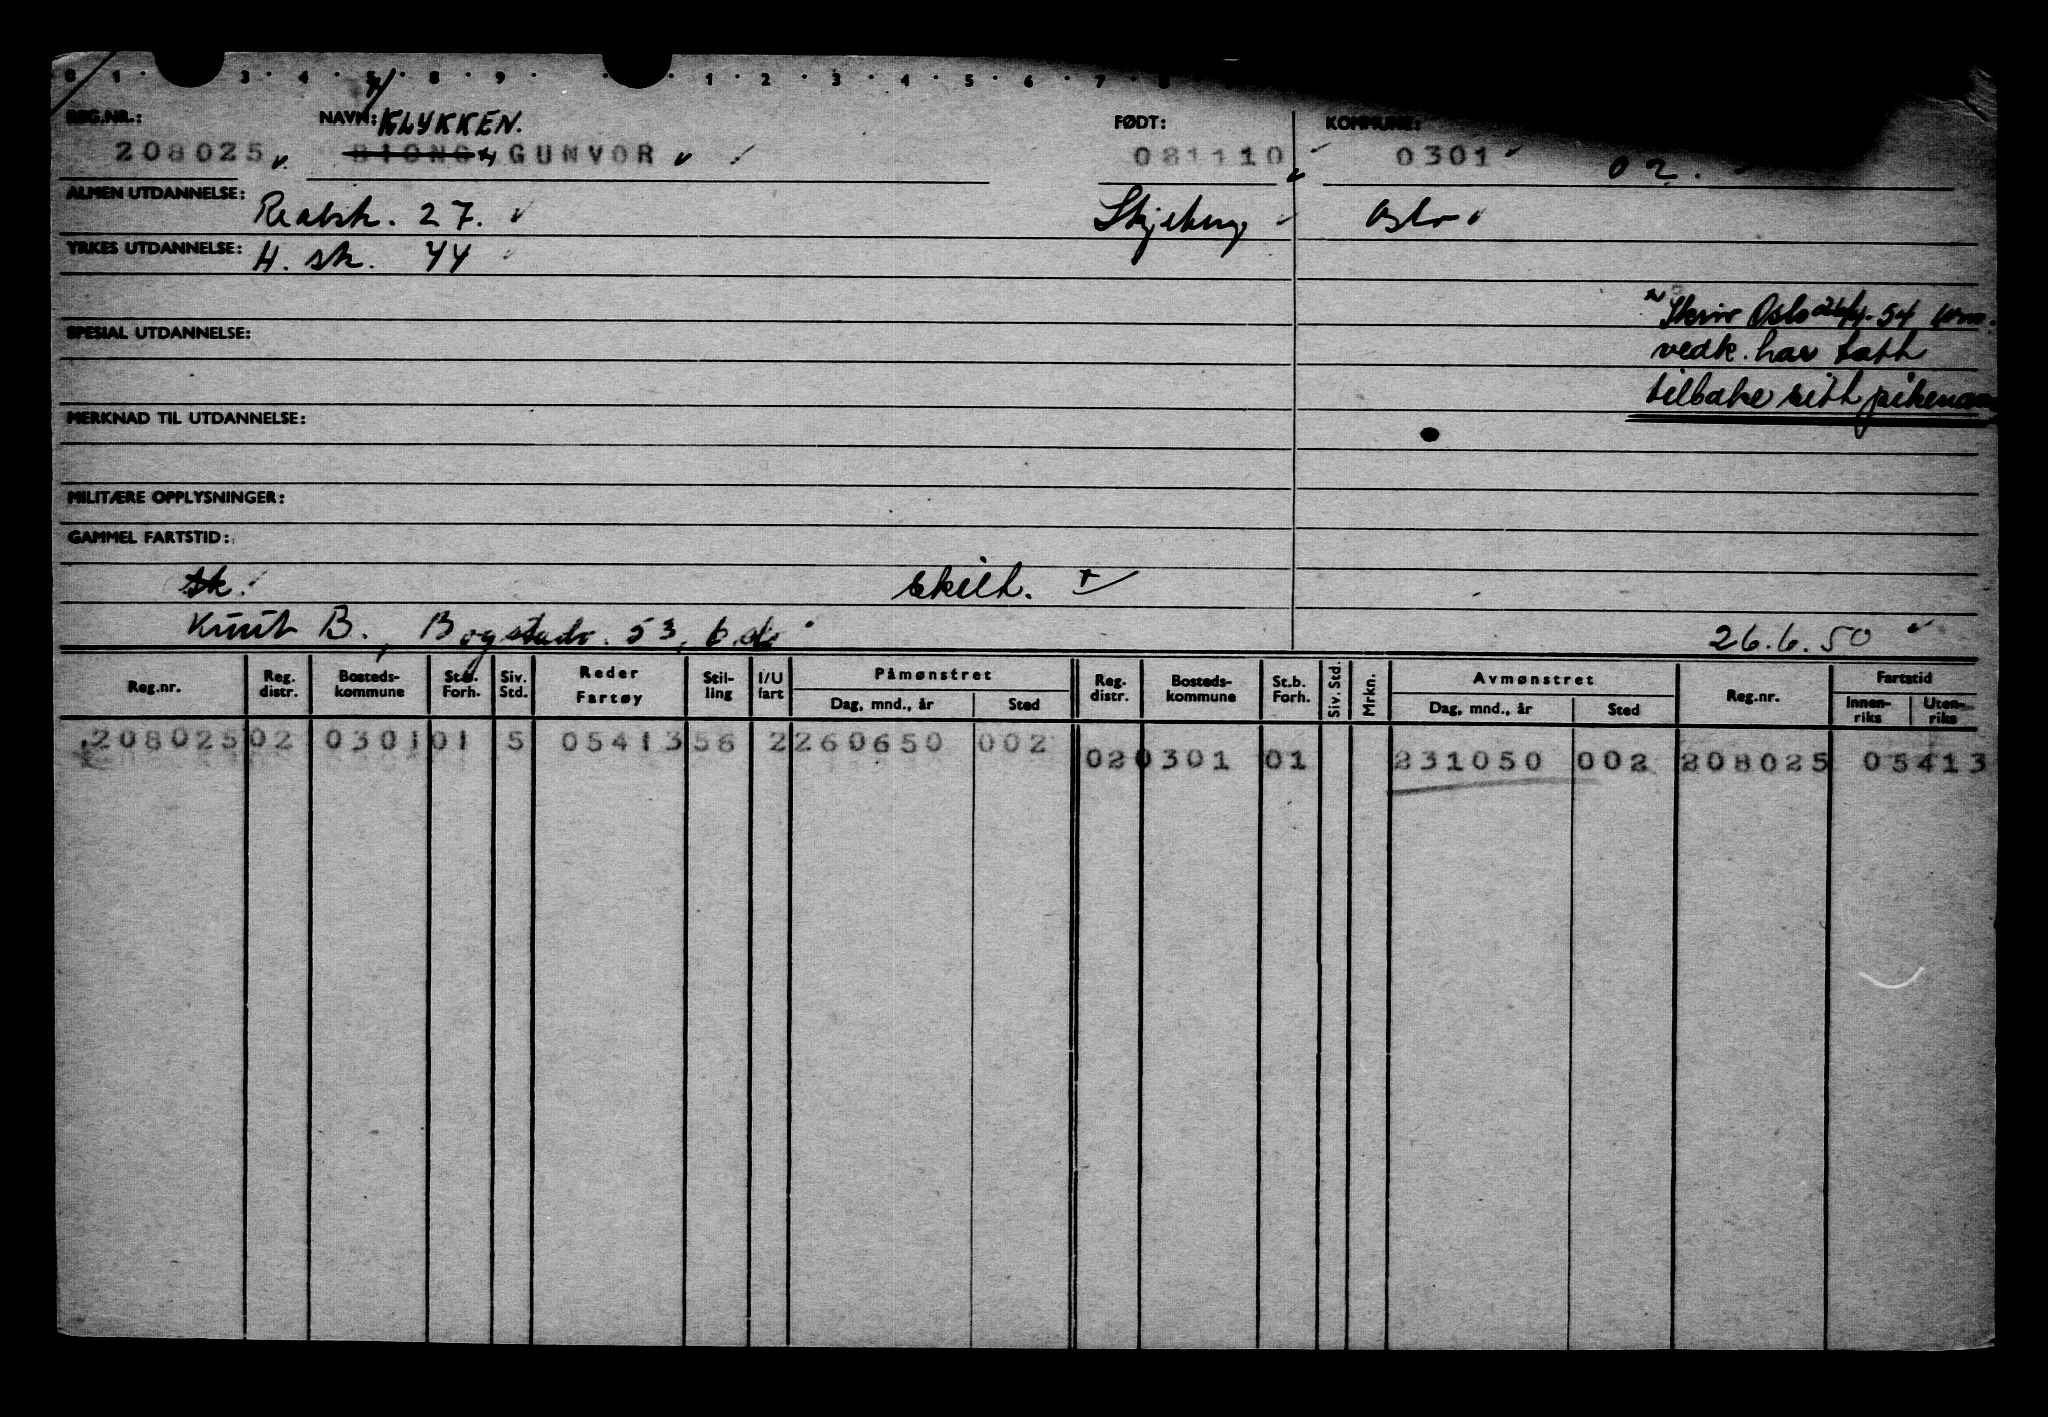 0 1 3 4 5 8 9 1 2 3 4 5 6 7 8
REG.NR.: NAVN: KLYKKEN. FØDT: KOMMUNE:
208025 BIONG GUNVOR 081110 0301 02.
ALMEN UTDANNELSE: Realsk. 27. Skjeberg Oslo
YRKES UTDANNELSE: H. sk. 44
Skriv Oslo 54
SPESIAL UTDANNELSE:
vedk. har tatt
tilbake sitt pikenavn
MERKNAD TIL UTDANNELSE:
MILITÆRE OPPLYSNINGER:
GAMMEL FARTSTID:
sk. skilt.
Knut B., Bogstadv. 53, b. do 26.6.50
Reg.nr. Reg. distr. Bosteds-kommune St.b. Forh. Siv. Std. Reder Fartøy Stil-ling I/U fart Påmønstret Dag, mnd., år Sted Reg. distr. Bosteds-kommune St.b. Forh. Siv. Std. Mrkn. Avmønstret Dag, mnd., år Sted Reg.nr. Fartstid Innen-riks Uten-riks
208025 02 0301 01 5 05413 56 2 260650 002
020301 01 231050 002 208025 05413